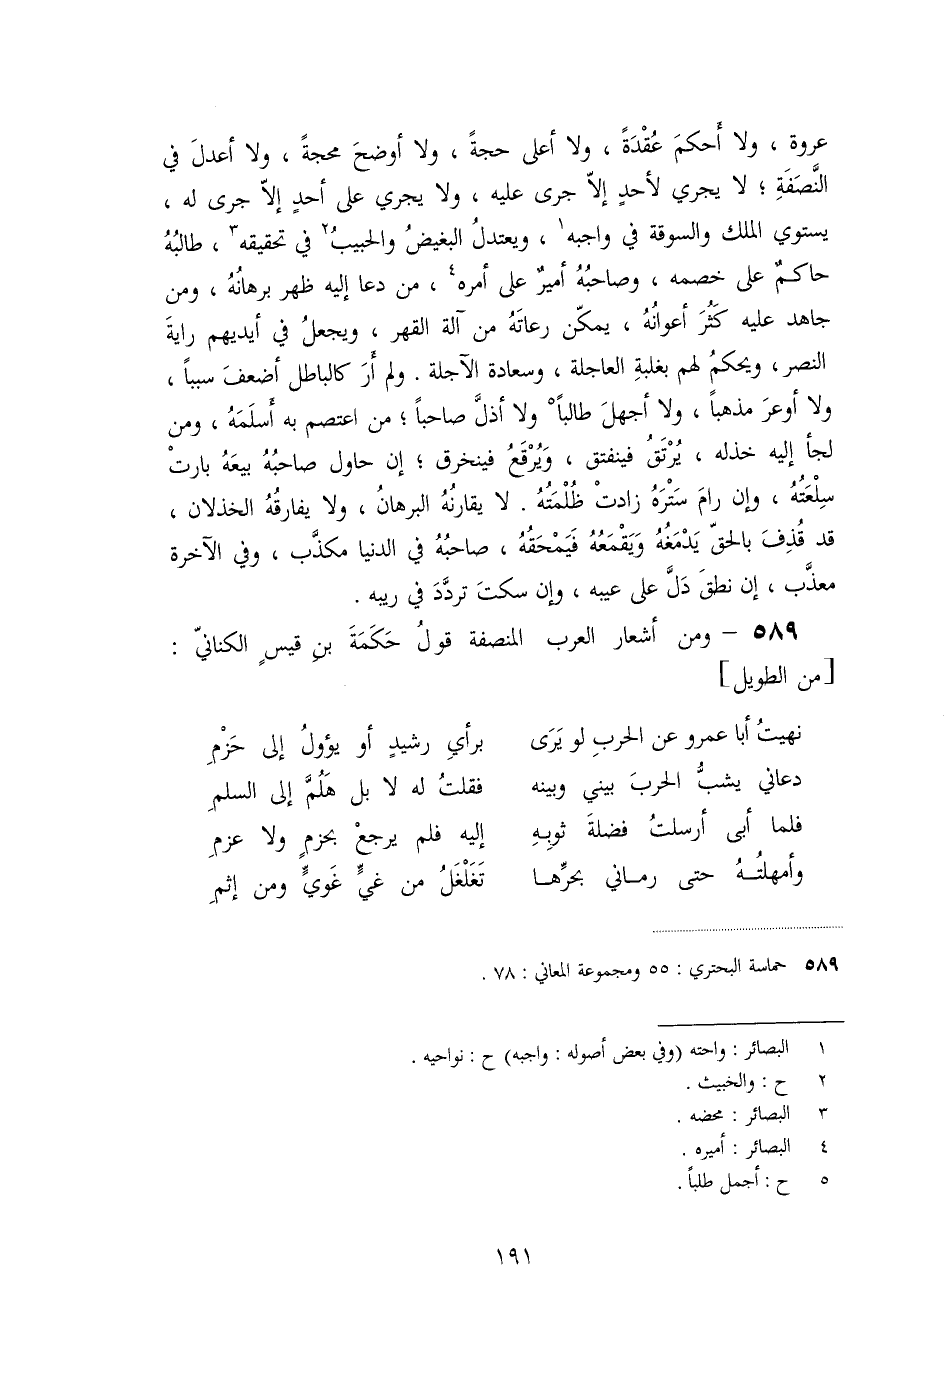 عروة ، ولا أَحكمَ عُقْدَةً ، ولا أعلى حجةً ، ولا أوضحَ محجةً ، ولا أعدلَ في
النَّصَفَةِ ؛ لا يجري لأحدٍ إلاّ جرى عليه ، ولا يجري على أحدٍ إلاّ جرى له ،
يستوي الملك والسوقة في واجبه١ ، ويعتدلُ البغيضُ والحبيبُ٢ في تحقيقه٣ ، طالبُهُ
حاكمٌ على خصمه ، وصاحبُهُ أميرٌ على أمره٤ ، من دعا إليه ظهر برهانُهُ ، ومن
جاهد عليه كَثُرَ أعوانُهُ ، يمكّن رعاتَهُ من آلة القهر ، ويجعلُ في أيديهم رايةَ
النصر ، ويحكمُ لهم بغلبةِ العاجلة ، وسعادة الآجلة . ولم أَرَ كالباطل أضعفَ سبباً ،
ولا أوعرَ مذهباً ، ولا أجهلَ طالباً٥ ولا أذلَّ صاحباً ؛ من اعتصم به أَسلَمَهُ ، ومن
لجأ إليه خذله ، يُرْتَقُ فينفتق ، وَيُرْقَعُ فينخرق ؛ إن حاول صاحبُهُ بيعَهُ بارتْ
سِلْعَتُهُ ، وإن رامَ سَتْرَهُ زادتْ ظُلْمَتُهُ . لا يقارنُهُ البرهانُ ، ولا يفارقُهُ الخذلان ،
قد قُذِفَ بالحقّ يَدْمَغُهُ وَيَقْمَعُهُ فَيَمْحَقُهُ ، صاحبُهُ في الدنيا مكذَّب ، وفي الآخرة
معذَّب ، إن نطقَ دَلَّ على عيبه ، وإن سكتَ تردَّدَ في ريبه .
٥٨٩ – ومن أشعار العرب المنصفة قولُ حَكَمَةَ بنِ قيسٍ الكنانيّ :
[من الطويل]
نهيتُ أبا عمرو عن الحربِ لو يَرَى برأيِ رشيدٍ أو يؤولُ إلى حَزْمِ
دعاني يشبُّ الحربَ بيني وبينه فقلتُ له لا بل هَلُمَّ إلى السلمِ
فلما أبى أرسلتُ فضلةَ ثوبِهِ إليه فلم يرجعْ بحزمٍ ولا عزمِ
وأمهلتُهُ حتى رماني بحرِّها تَغَلْغَلُ من غيٍّ غَويٍّ ومن إثمِ
٥٨٩ حماسة البحتري : ٥٥ ومجموعة المعاني : ٧٨ .
١ البصائر : واحته (وفي بعض أصوله : واجبه) ح : نواحيه .
٢ ح : والخبيث .
٣ البصائر : محضه .
٤ البصائر : أميره .
٥ ح : أجمل طلباً .
١٩١